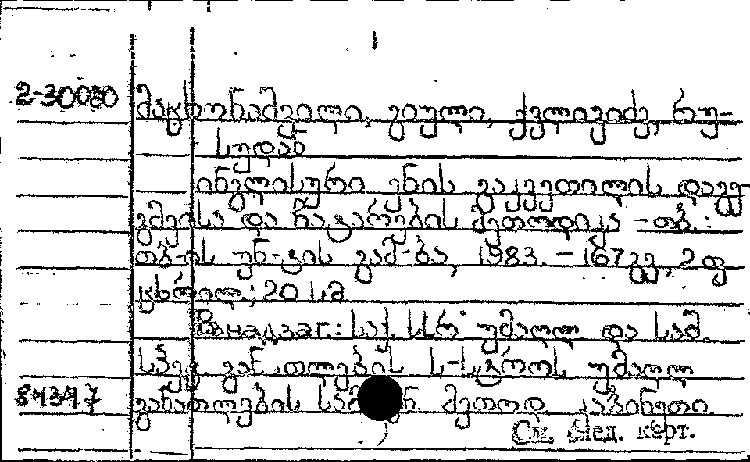 2-30080 მაჭხუნაშვილი, გიული, ქვლივიძე, რუ-
სუდან
ინგლისური ენის გაკვეთილის დაგე-
გმვისა და ჩატარების მეთოდიკა -თბ.:
თბ-ის უნ-ტის გამ-ბა, 1983. - 167გვ, 2 ფ
ცხრილ.; 20 სმ
: საქ. სსრ უმაღლ და საშ.
სპეც. განათლების ს-სტროს უმაღლ
84347 განათლების სამ მეთოდ კაბინეთი
См. след. карт.